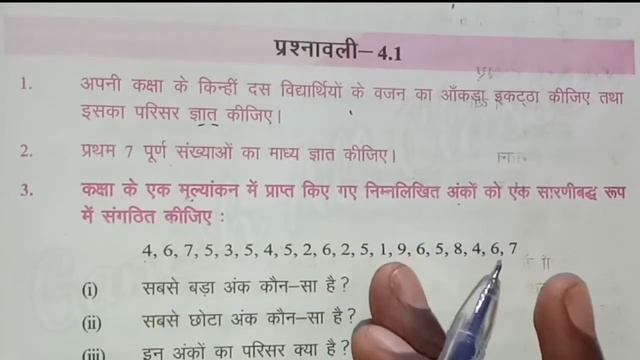 प्रश्नावली–4.1
1. अपनी कक्षा के किन्हीं दस विद्यार्थियों के वजन का आँकड़ा इकट्ठा कीजिए तथा
इसका परिसर ज्ञात कीजिए।
2. प्रथम 7 पूर्ण संख्याओं का माध्य ज्ञात कीजिए।
3. कक्षा के एक मूल्यांकन में प्राप्त किए गए निम्नलिखित अंकों को एक सारणीबद्ध रूप
में संगठित कीजिए :
4, 6, 7, 5, 3, 5, 4, 5, 2, 6, 2, 5, 1, 9, 6, 5, 8, 4, 6, 7
(i) सबसे बड़ा अंक कौन–सा है?
(ii) सबसे छोटा अंक कौन–सा है?
(iii) इन अंकों का परिसर क्या है?